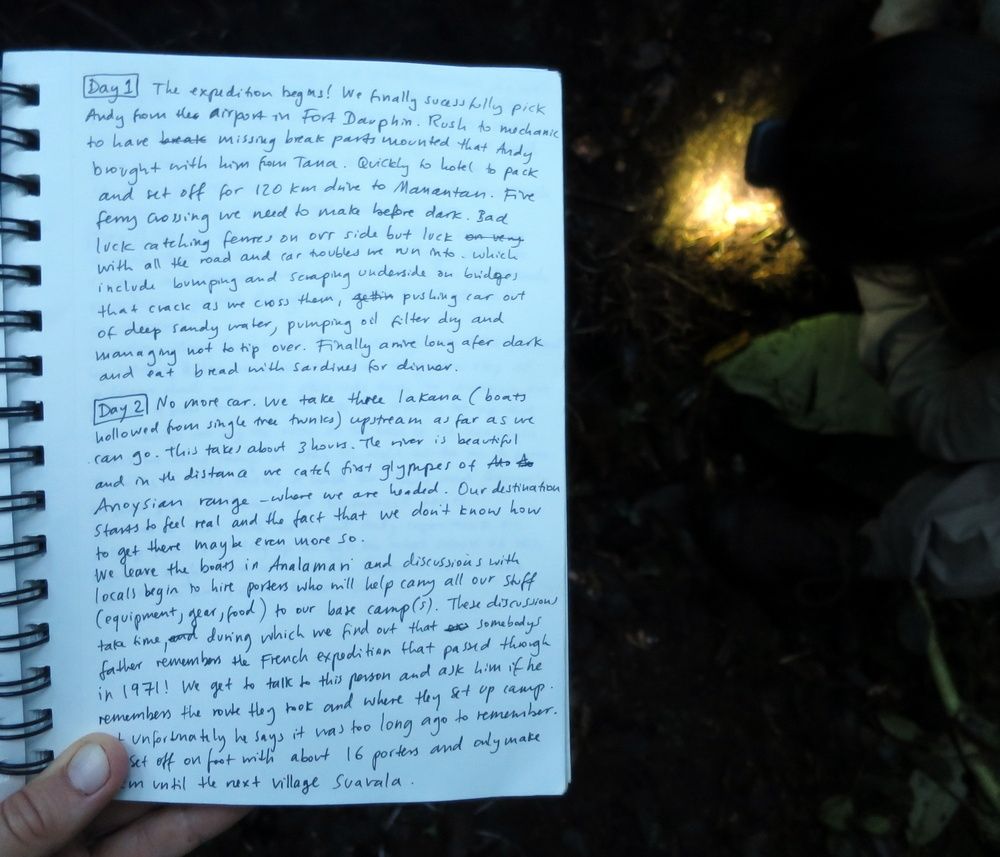 Day 1 The expedition begins! We finally sucessfully pick
Andy from the airport in Fort Dauphin. Rush to mechanic
to have break missing break parts mounted that Andy
brought with him from Tana. Quickly to hotel to pack
and set off for 120 km drive to Manantan. Five
ferry crossing we need to make before dark. Bad
luck catching ferries on our side but luck on very
with all the road and car troubles we run into. which
include bumping and scraping underside on bridges
that crack as we cross them, gettin pushing car out
of deep sandy water, pumping oil filter dry and
managing not to tip over. Finally arrive long afer dark
and eat bread with sardines for dinner.
Day 2 No more car. We take three lakana (boats
hollowed from single tree trunks) upstream as far as we
can go. This takes about 3 hours. The river is beautiful
and in the distance we catch first glympes of
Anoysian range - where we are headed. Our destination
starts to feel real and the fact that we don't know how
to get there maybe even more so.
We leave the boats in Analamari and discussions with
locals begin to hire porters who will help carry all our stuff
(equipment, gear, food) to our base camp(s). These discussions
take time, and during which we find out that somebodys
father remembers the French expedition that passed through
in 1971! We get to talk to this person and ask him if he
remembers the route they took and where they set up camp.
unfortunately he says it was too long ago to remember.
set off on foot with about 16 porters and only make
until the next village Suavala.